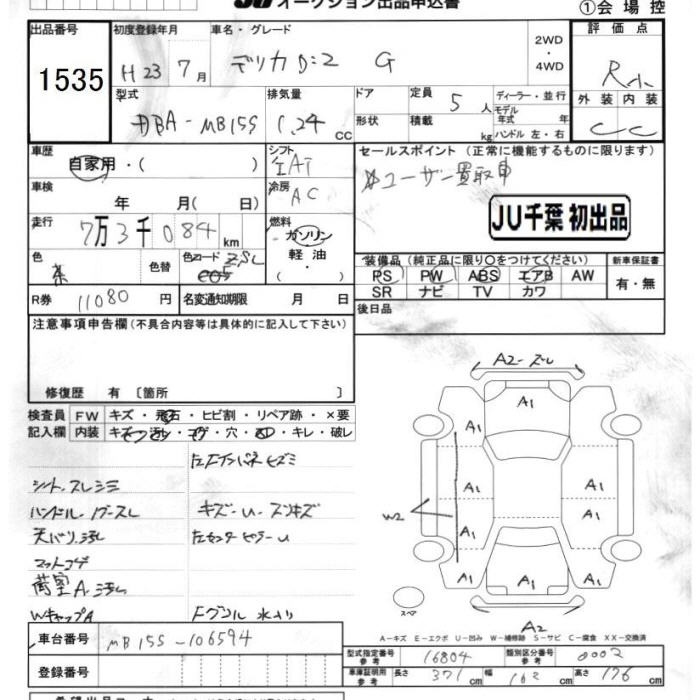 オークション出品申込書
①会場控
出品番号
1535
初度登録年月
H 23 7月
車名・グレード
デリカD:2 G
2WD
・
4WD
評価点
R小
外装 内装
C C
型式
DBA-MB15S
排気量
1.24 CC
ドア
形状
定員 5人
積載 kg
ディーラー・並行
モデル
年式 年
ハンドル 左・右
車歴
自家用・( )
シフト
IAT
セールスポイント (正常に機能するものに限ります)
ユーザー買取車
車検
年 月( 日)
冷房
AC
JU千葉 初出品
走行
7万3千084km
燃料
ガソリン
軽油
( ・ )
色
色替
色コード ZSL
装備品 (純正品に限り○をつけてください)
PS PW ABS エアB AW
SR ナビ TV カワ
新車保証書
有・無
R券 11080円
名変通知期限 月 日
後日品
注意事項申告欄(不具合内容等は具体的に記入して下さい)
修復歴 有 〔箇所 〕
検査員 FW キズ・飛石・ヒビ割・リペア跡・×要
記入欄 内装
・穴・ ・キレ・破レ
シート、スレシミ
ハンドル
天バリ、汚レ
マットコゲ
荷室A、汚レ
WキャップA
キズ-U-スリキズ
A2-ズレ
A1
A1
A1
A1
A1
A1
A1
A1
A1
A1
W2
スペア
A2
A-キズ E-エクボ U-凹み W-補修跡 S-サビ C-腐食 XX-交換済
車台番号
MB15S-106594
型式指定番号
参考
16804
類別区分番号
参考
0002
登録番号
車庫証明用
参考
長さ 371cm
幅 162cm
高さ 176cm